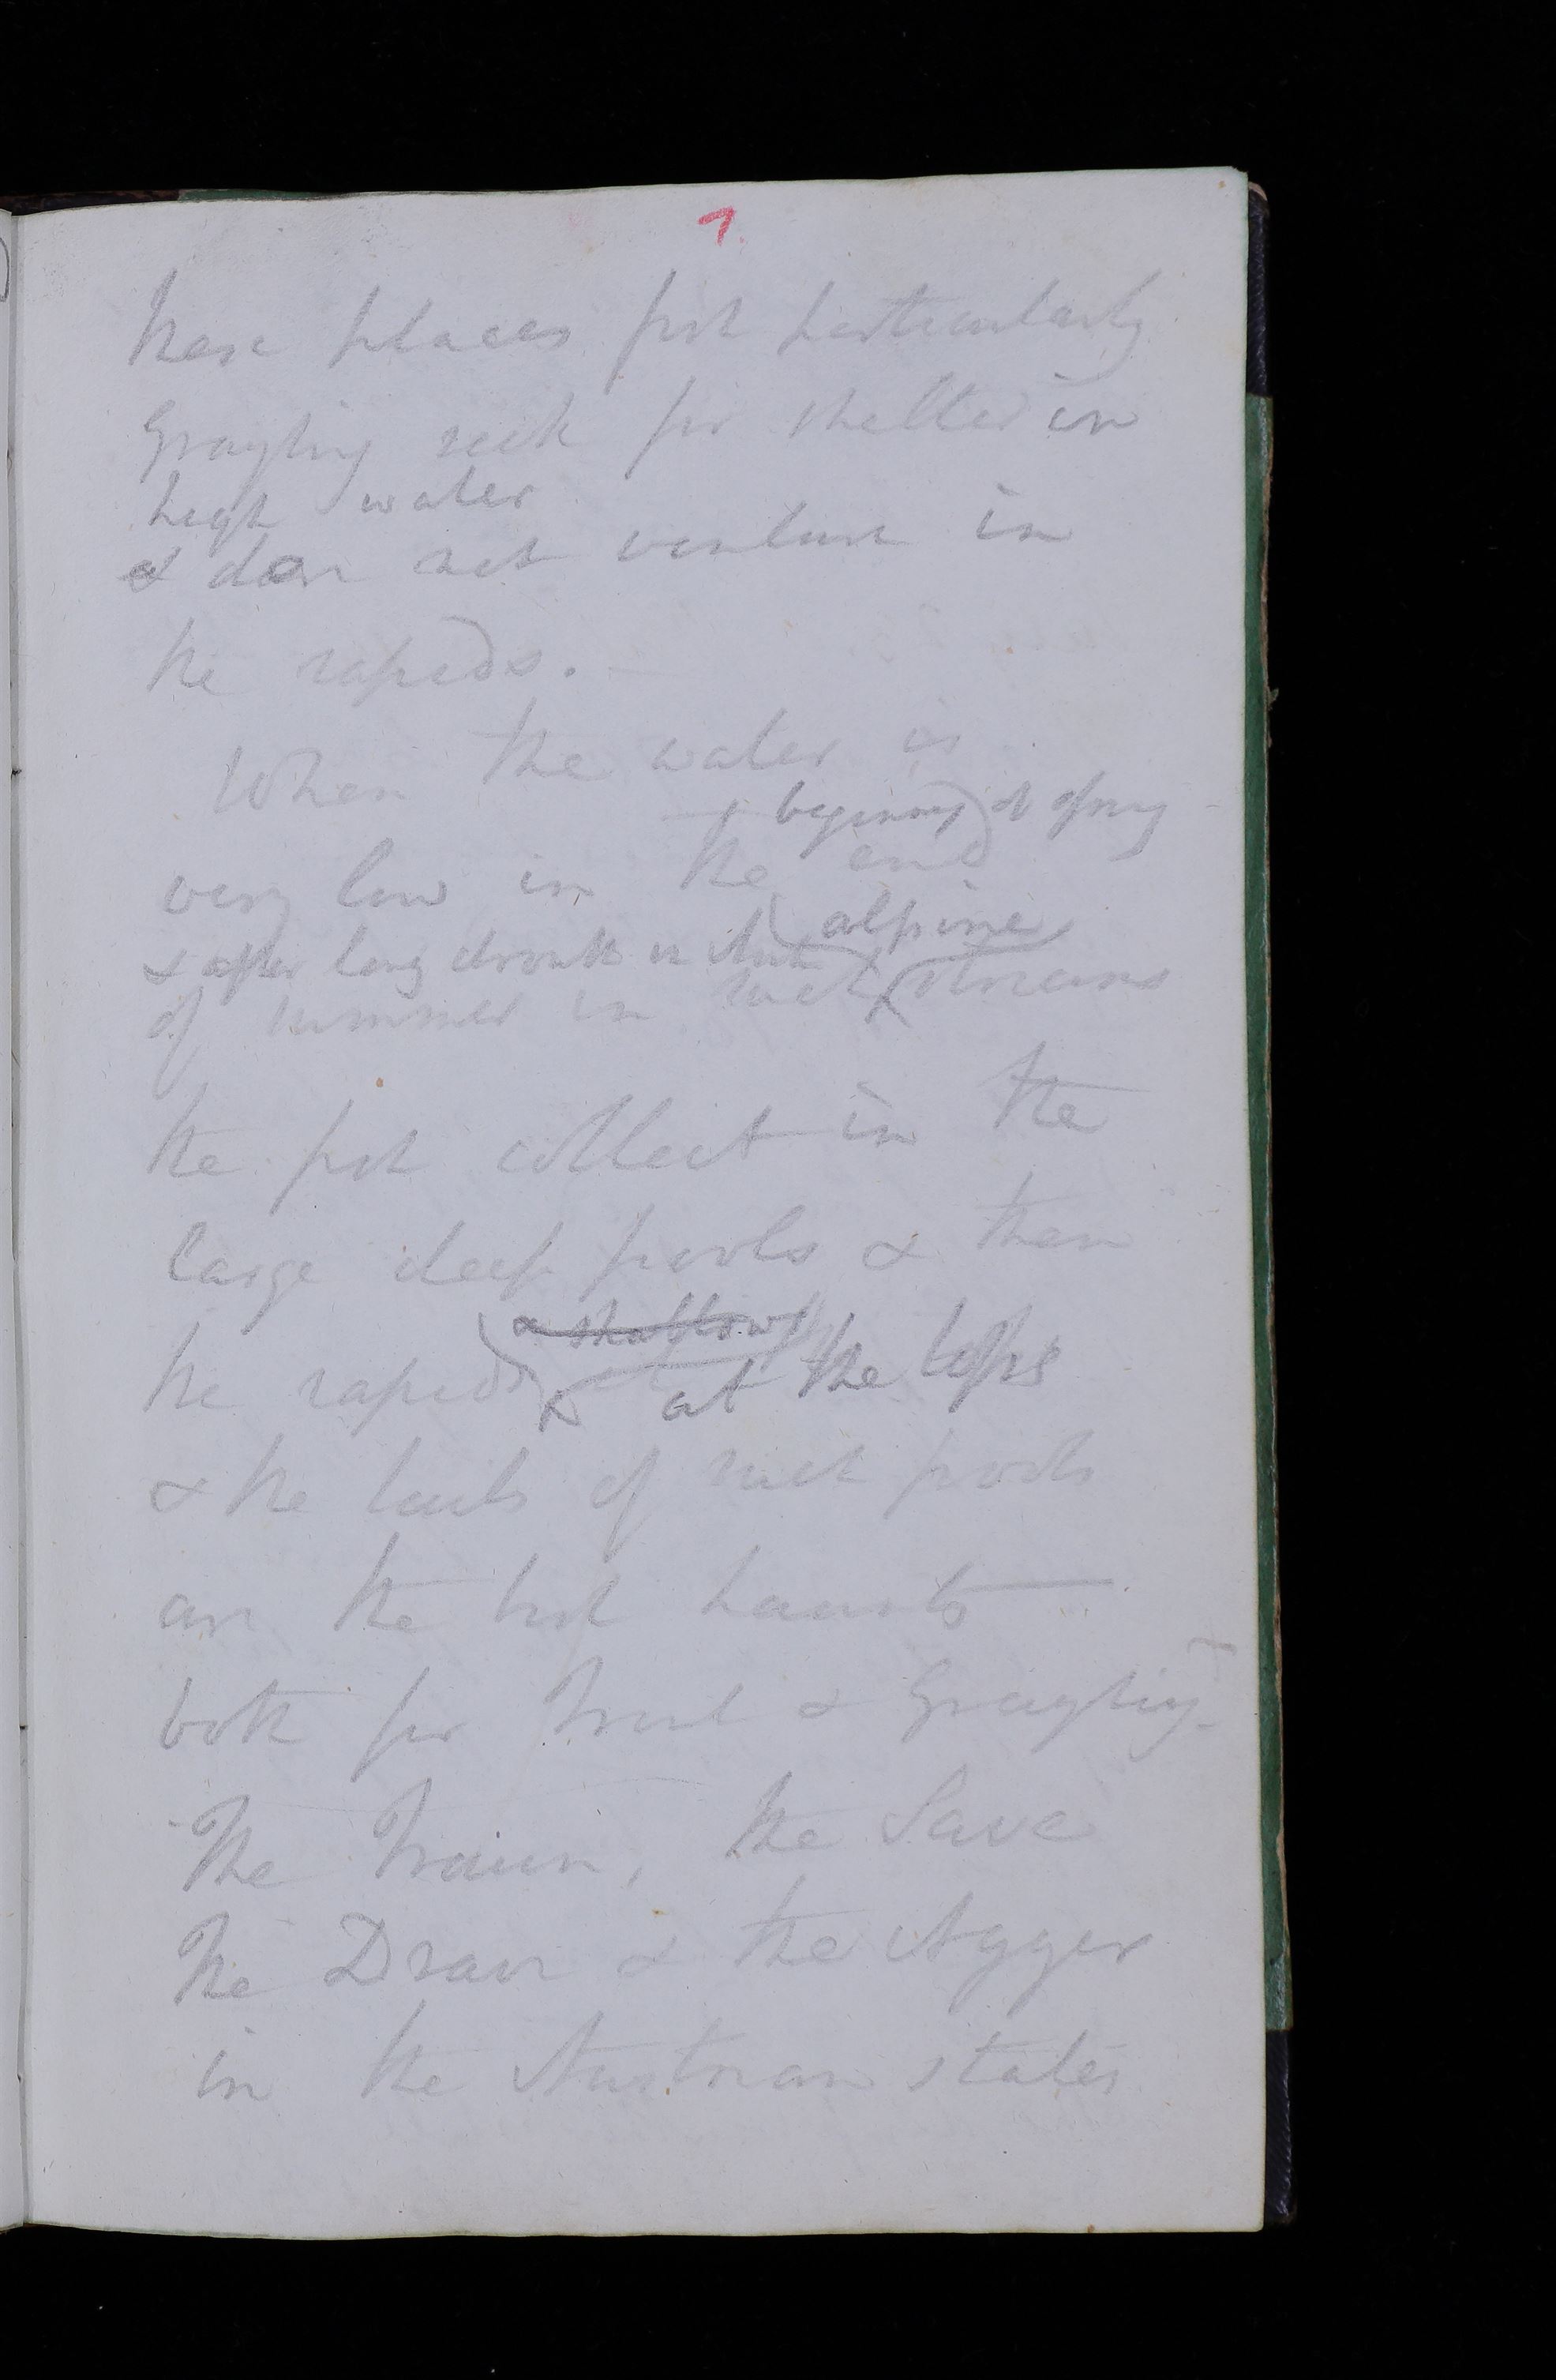 7.
these places fish particularly
Grayling seek for shelter in
high water
& dare not venture in
the rapids. —
When the water is
beginning of spring
very low in the end
& after long drouth in
alpine
of summer in such streams
the fish collect in the
large deep pools & then
& shallows
the rapids at the tops
& the tails of such pools
are the best haunts —
both for Trout & Grayling
The Traun, the Save
The Drave & the Agger
in the Austrian states